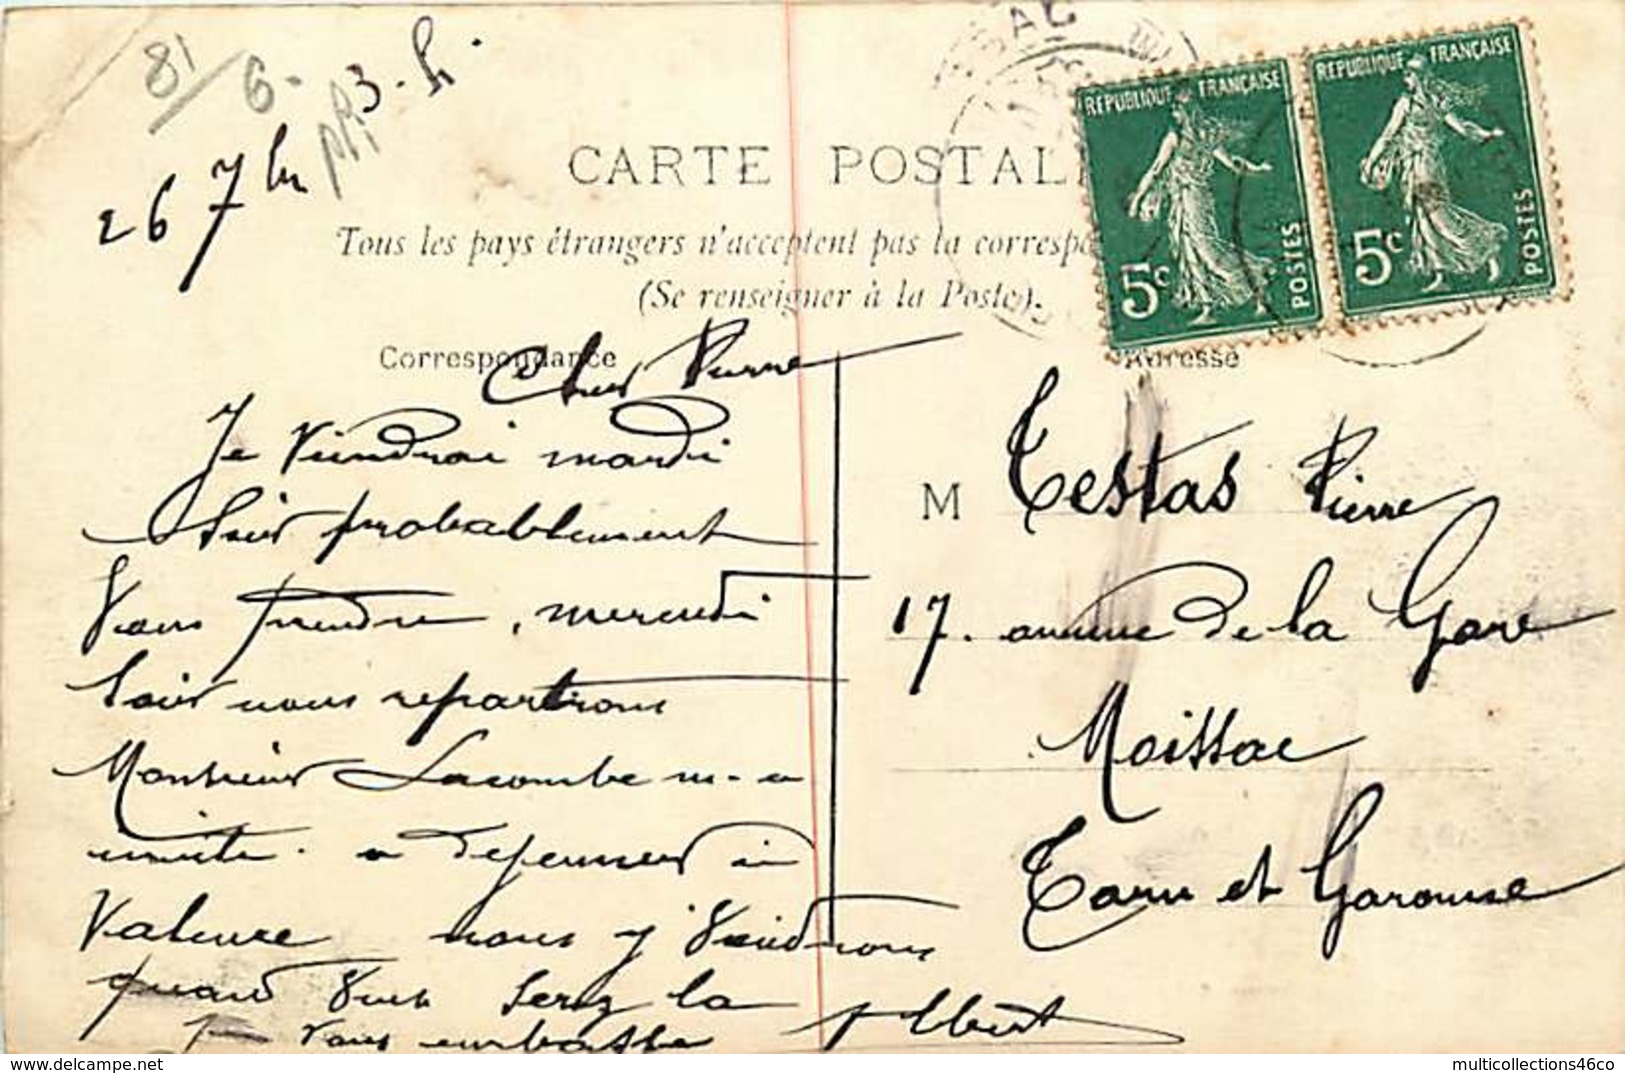 81/6-
3-h.
26 7bre
CARTE POSTALE
Tous les pays étrangers n'acceptent pas la correspo
(Se renseigner à la Poste).
RÉPUBLIQUE FRANÇAISE
5c
POSTES
RÉPUBLIQUE FRANÇAISE
5c
POSTES
Correspondance
Adresse
Cher Pierre
Je viendrai mardi
soir probablement
vous prendre, mercredi
soir nous repartirons
Monsieur Lacombe m-a
invité. a dejeuner à
Valence nous y viendrons
quand vous serez là
Je vous embrasse Albert
M Testas Pierre
17. avenue de la Gare
Moissac
Tarn et Garonne
delcampe.net
multicollections46co